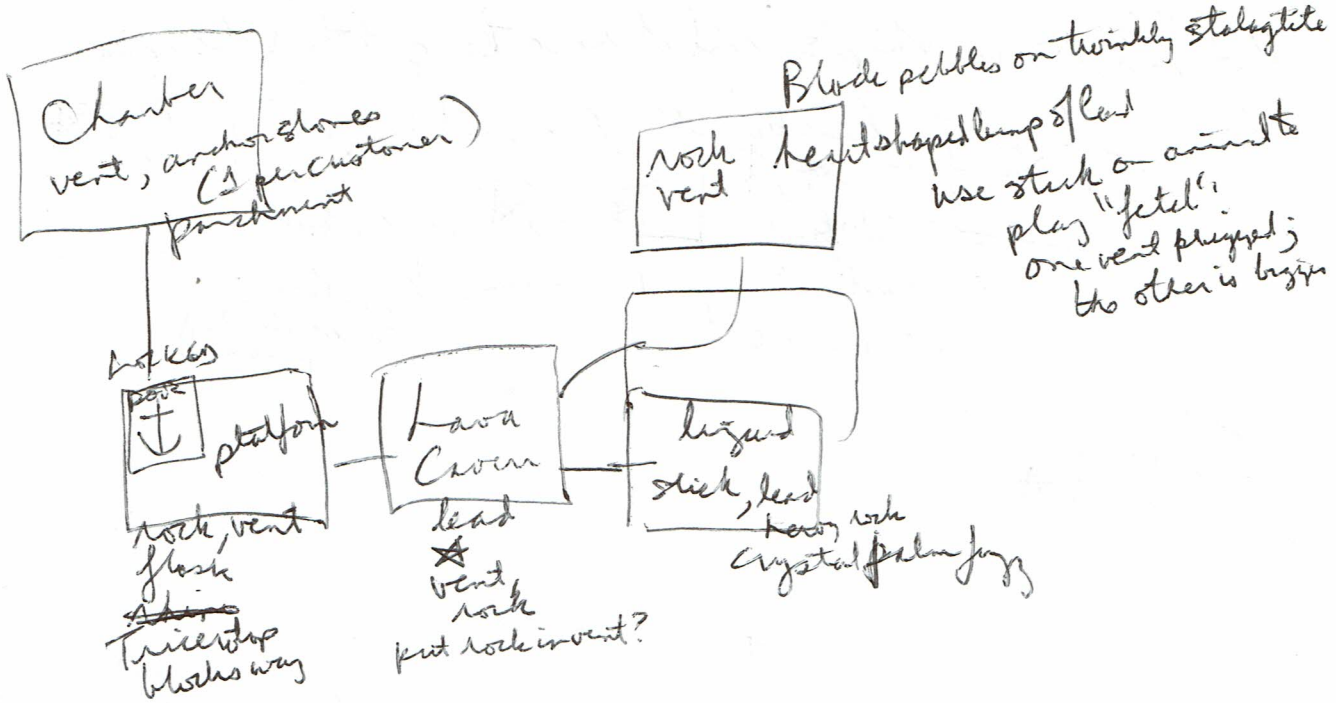 Chamber
vent, anchor stones
(1 per customer)
parchment
Block pebbles on twinkly stalagtite
rock
vent
heart shaped lump of lead
use stick on animal to
play "fetch",
one vent plugged;
the other is bigger
Locked
Door
platform
rock, vent
flask
Tricertop
blocks way
Lava
Cavern
lead
vent,
rock
put rock in vent?
lizard
stick, lead
heavy rock
crystal palm fuzz